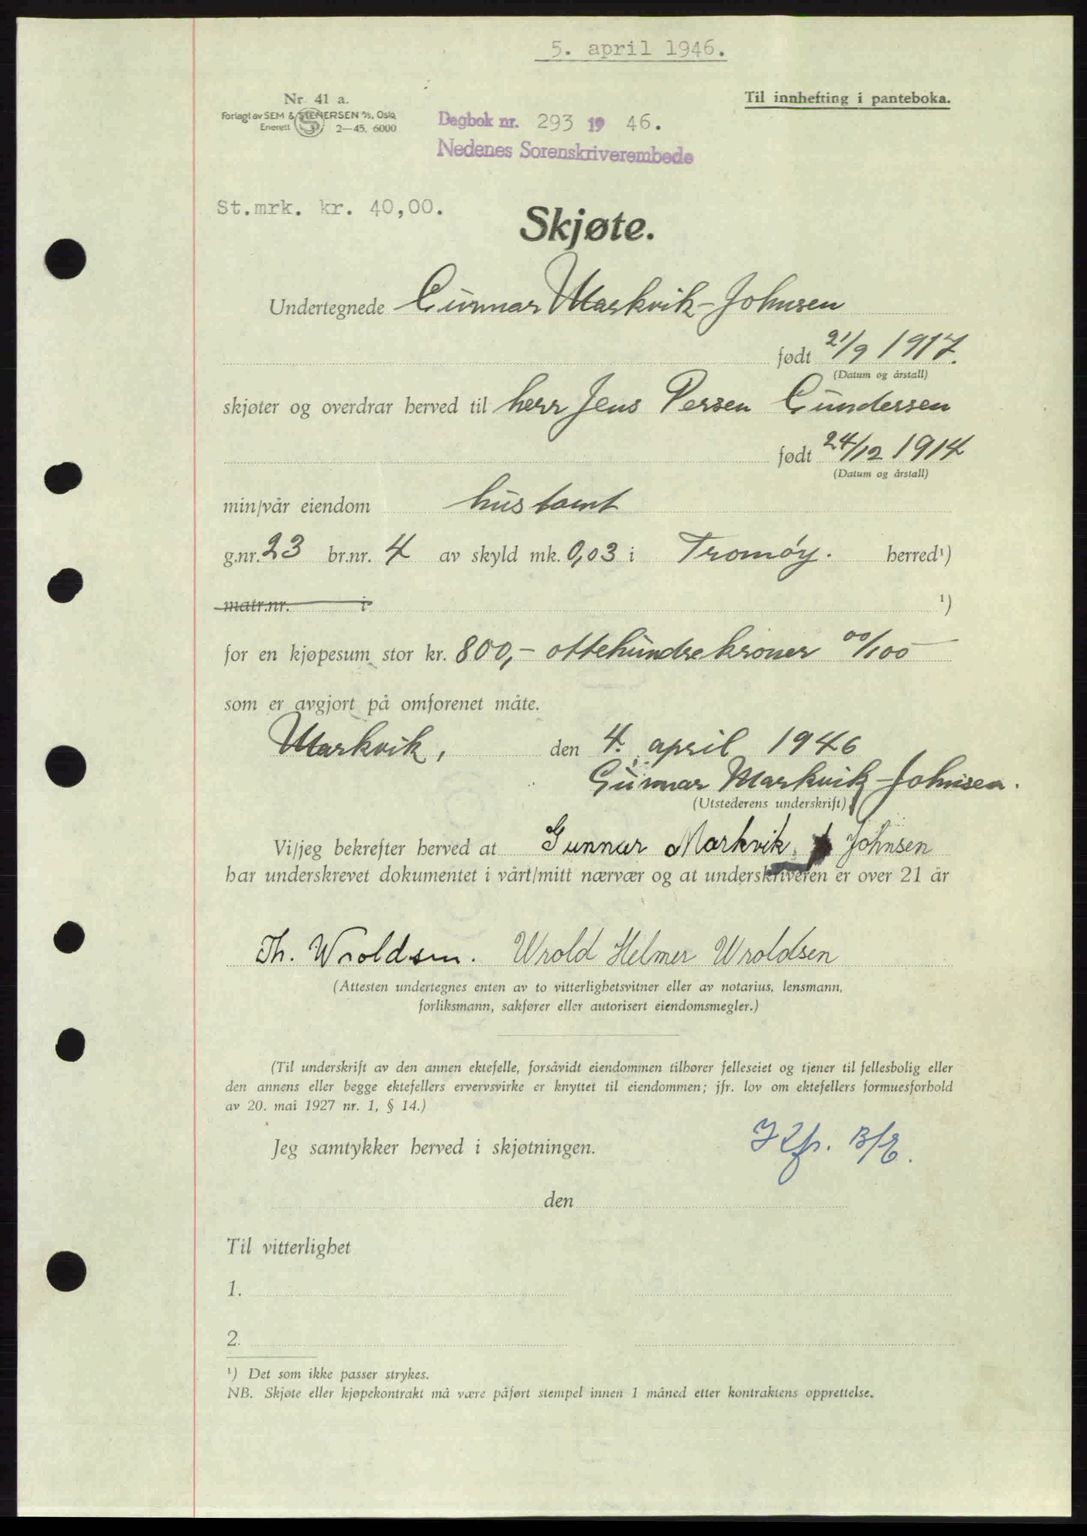 5. april 1946.
Nr. 41 a.
Til innhefting i panteboka.
Forlagt av SEM & STENERSEN A/S, Oslo
Enerett S 2—45. 6000
Dagbok nr. 293 1946.
Nedenes Sorenskriverembede
St.mrk. kr. 40,00.
Skjøte.
Undertegnede Gunnar Markvik-Johnsen
født 21/9 1917.
(Datum og årstall)
skjøter og overdrar herved til herr Jens Persen Gundersen
født 24/12 1914
(Datum og årstall)
min/vår eiendom hustomt
g.nr. 23 br.nr. 4 av skyld mk. 0,03 i Tromøy. herred¹)
matr.nr. i ¹)
for en kjøpesum stor kr. 800,- ottehundrekroner 00/100
som er avgjort på omforenet måte.
Markvik, den 4. april 1946
Gunnar Markvik-Johnsen.
(Utstederens underskrift)
Vi/jeg bekrefter herved at Gunnar Markvik Johnsen
har underskrevet dokumentet i vårt/mitt nærvær og at underskriveren er over 21 år
Th. Wroldsen. Wrold Helmer Wroldsen
(Attesten undertegnes enten av to vitterlighetsvitner eller av notarius, lensmann,
forliksmann, sakfører eller autorisert eiendomsmegler.)
(Til underskrift av den annen ektefelle, forsåvidt eiendommen tilhører felleseiet og tjener til fellesbolig eller
den annens eller begge ektefellers ervervsvirke er knyttet til eiendommen; jfr. lov om ektefellers formuesforhold
av 20. mai 1927 nr. 1, § 14.)
Jeg samtykker herved i skjøtningen.
den
Til vitterlighet
1.
2.
¹) Det som ikke passer strykes.
NB. Skjøte eller kjøpekontrakt må være påført stempel innen 1 måned etter kontraktens opprettelse.